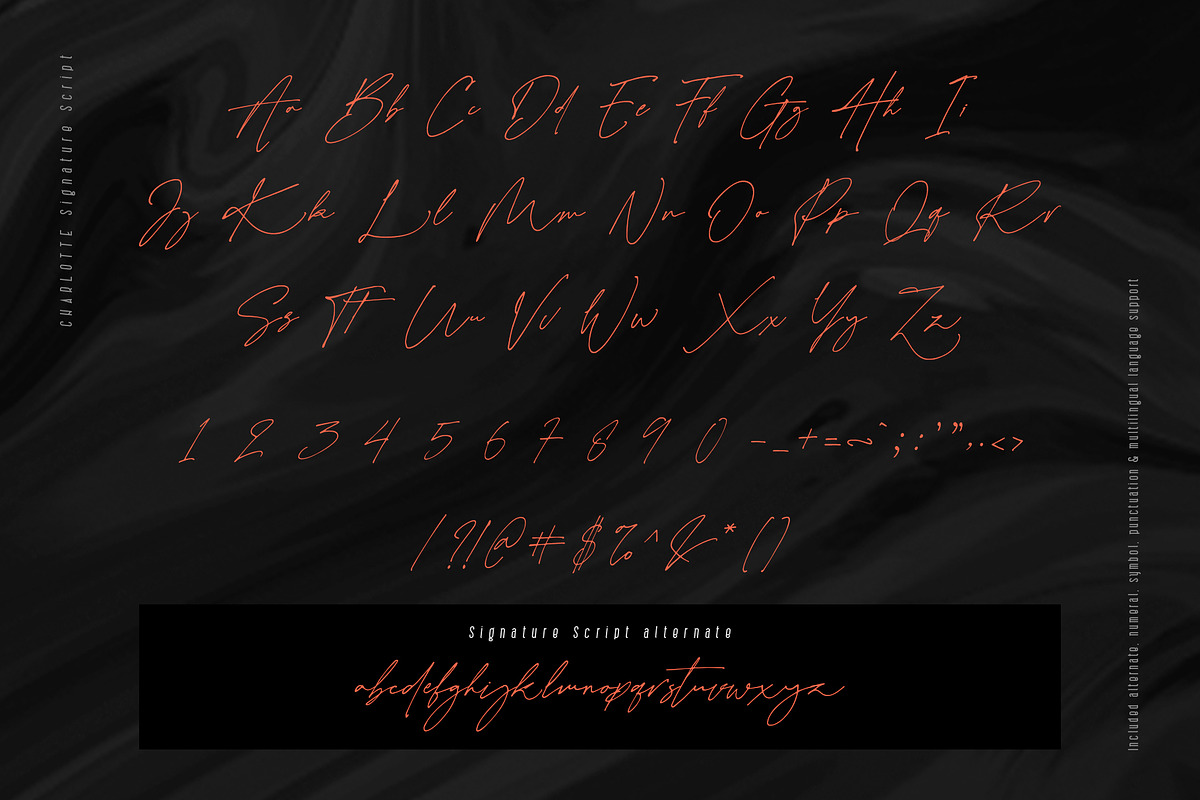 CHARLOTTE Signature Script
Aa Bb Cc Dd Ee Ff Gg Hh Ii
Jj Kk Ll Mm Nn Oo Pp Qq Rr
Ss Tt Uu Vv Ww Xx Yy Zz
1 2 3 4 5 6 7 8 9 0 - _ + = ~ ^ ; : ' " , . < >
/ ? ! @ # $ % ^ & * ( )
Signature Script alternate
abcdefghijklmnopqrstuvwxyz
Included alternate, numeral, symbol, punctuation & multilingual language support